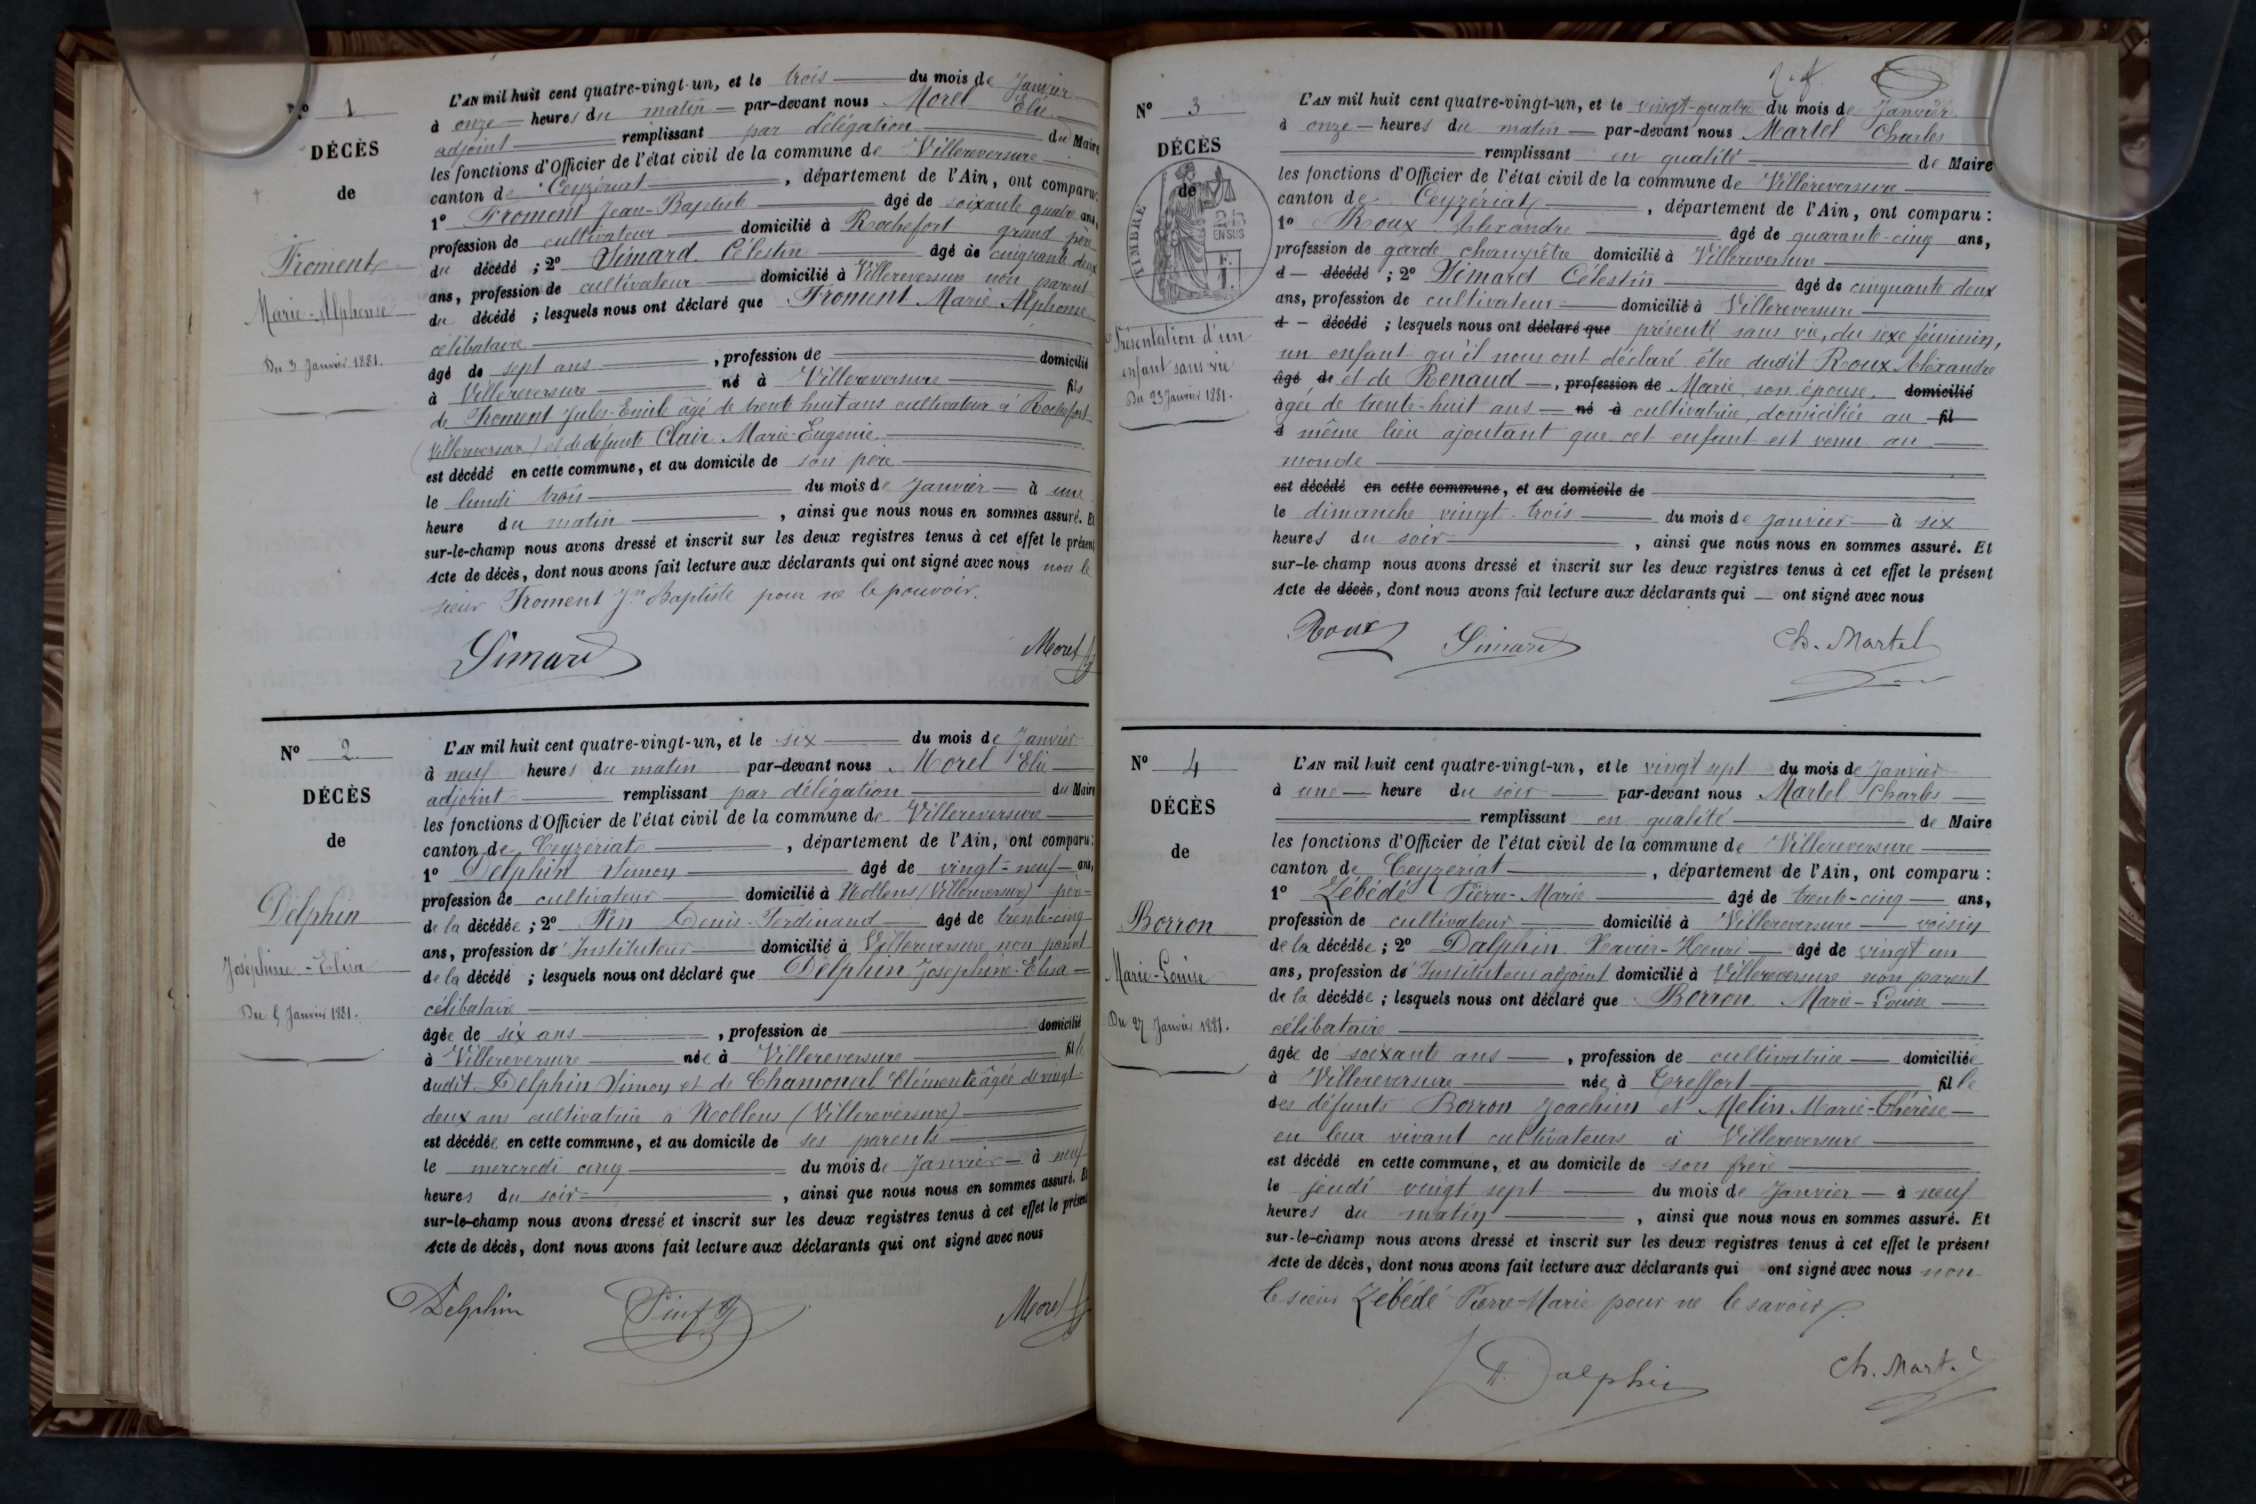 N° 1
DÉCÈS
de
Froment
Marie-Alphonse
Du 3 Janvier 1881.
L'AN mil huit cent quatre-vingt-un, et le trois du mois de Janvier
à onze heures du matin par-devant nous Morel Elie
adjoint remplissant par délégation du Maire
les fonctions d'Officier de l'état civil de la commune de Villereversure
canton de Ceyzériat, département de l'Ain, ont comparu:
1° Froment Jean-Baptiste âgé de soixante quatre ans,
profession de cultivateur domicilié à Rochefort grand père
du décédé ; 2° Simard Célestin âgé de cinquante deux
ans, profession de cultivateur domicilié à Villereversure non parent
du décédé ; lesquels nous ont déclaré que Froment Marie Alphonse
célibataire
âgé de sept ans, profession de domicilié
à Villereversure né à Villereversure fils
de Froment Jules-Emile âgé de trente huit ans cultivateur à Rochefort
(Villereversure) et de défunte Clair Marie-Eugenie
est décédé en cette commune, et au domicile de son père
le lundi trois du mois de Janvier à une
heure du matin, ainsi que nous nous en sommes assuré. Et
sur-le-champ nous avons dressé et inscrit sur les deux registres tenus à cet effet le présent
Acte de décès, dont nous avons fait lecture aux déclarants qui ont signé avec nous non le
sieur Froment Jn Baptiste pour ne le pouvoir.
Simard Morel
N° 2
DÉCÈS
de
Delphin
Joséphine-Elisa
Du 5 Janvier 1881.
L'AN mil huit cent quatre-vingt-un, et le six du mois de Janvier
à neuf heures du matin par-devant nous Morel Elie
adjoint remplissant par délégation du Maire
les fonctions d'Officier de l'état civil de la commune de Villereversure
canton de Ceyzériat, département de l'Ain, ont comparu:
1° Delphin Simon âgé de vingt-neuf ans,
profession de cultivateur domicilié à Noblens (Villereversure) père
de la décédée ; 2° Pin Denis-Ferdinand âgé de trente-cinq
ans, profession d'Instituteur domicilié à Villereversure non parent
de la décédé ; lesquels nous ont déclaré que Delphin Joséphine-Elisa
célibataire
âgée de six ans, profession de domicilié
à Villereversure née à Villereversure fille
dudit Delphin Simon et de Chamonal Clémente âgée de vingt
deux ans cultivatrice à Noblens (Villereversure)
est décédée en cette commune, et au domicile de ses parents
le mercredi cinq du mois de Janvier à neuf
heures du soir, ainsi que nous nous en sommes assuré. Et
sur-le-champ nous avons dressé et inscrit sur les deux registres tenus à cet effet le présent
Acte de décès, dont nous avons fait lecture aux déclarants qui ont signé avec nous
Delphin Pin Morel
N° 3
DÉCÈS
de
TIMBRE
Présentation d'un
enfant sans vie
Du 23 Janvier 1881.
L'AN mil huit cent quatre-vingt-un, et le vingt-quatre du mois de Janvier
à onze heures du matin par-devant nous Martel Charles
remplissant en qualité de Maire
les fonctions d'Officier de l'état civil de la commune de Villereversure
canton de Ceyzériat, département de l'Ain, ont comparu :
1° Roux Alexandre âgé de quarante-cinq ans,
profession de garde champêtre domicilié à Villereversure
d décédé ; 2° Simard Célestin âgé de cinquante deux
ans, profession de cultivateur domicilié à Villereversure
d décédé ; lesquels nous ont déclaré que présenté sans vie, du sexe féminin,
un enfant qu'il nous ont déclaré être dudit Roux Alexandre
âgé de et de Renaud, profession de Marie son épouse domicilié
âgée de trente-huit ans né à cultivatrice, domiciliée au fil
d même lieu ajoutant que cet enfant est venu au
monde
est décédé en cette commune, et au domicile de
le dimanche vingt-trois du mois de Janvier à six
heures du soir, ainsi que nous nous en sommes assuré. Et
sur-le-champ nous avons dressé et inscrit sur les deux registres tenus à cet effet le présent
Acte de décès, dont nous avons fait lecture aux déclarants qui ont signé avec nous
Roux Simard Ch. Martel
N° 4
DÉCÈS
de
Borron
Marie-Louise
Du 27 Janvier 1881.
L'AN mil huit cent quatre-vingt-un, et le vingt sept du mois de Janvier
à une heure du soir par-devant nous Martel Charles
remplissant en qualité de Maire
les fonctions d'Officier de l'état civil de la commune de Villereversure
canton de Ceyzériat, département de l'Ain, ont comparu :
1° Zébédé Pierre-Marie âgé de trente-cinq ans,
profession de cultivateur domicilié à Villereversure voisin
de la décédée ; 2° Dalphin Xavier-Henri âgé de vingt un
ans, profession d'Instituteur adjoint domicilié à Villereversure non parent
de la décédée ; lesquels nous ont déclaré que Borron Marie-Louise
célibataire
âgée de soixante ans, profession de cultivatrice domiciliée
à Villereversure née à Treffort fille
des défunts Borron Joachim et Melin Marie-Thérèse
en leur vivant cultivateurs à Villereversure
est décédé en cette commune, et au domicile de son frère
le jeudi vingt sept du mois de Janvier à neuf
heures du matin, ainsi que nous nous en sommes assuré. Et
sur-le-champ nous avons dressé et inscrit sur les deux registres tenus à cet effet le présent
Acte de décès, dont nous avons fait lecture aux déclarants qui ont signé avec nous non
le sieur Zébédé Pierre-Marie pour ne le savoir.
H. Dalphin Ch. Martel